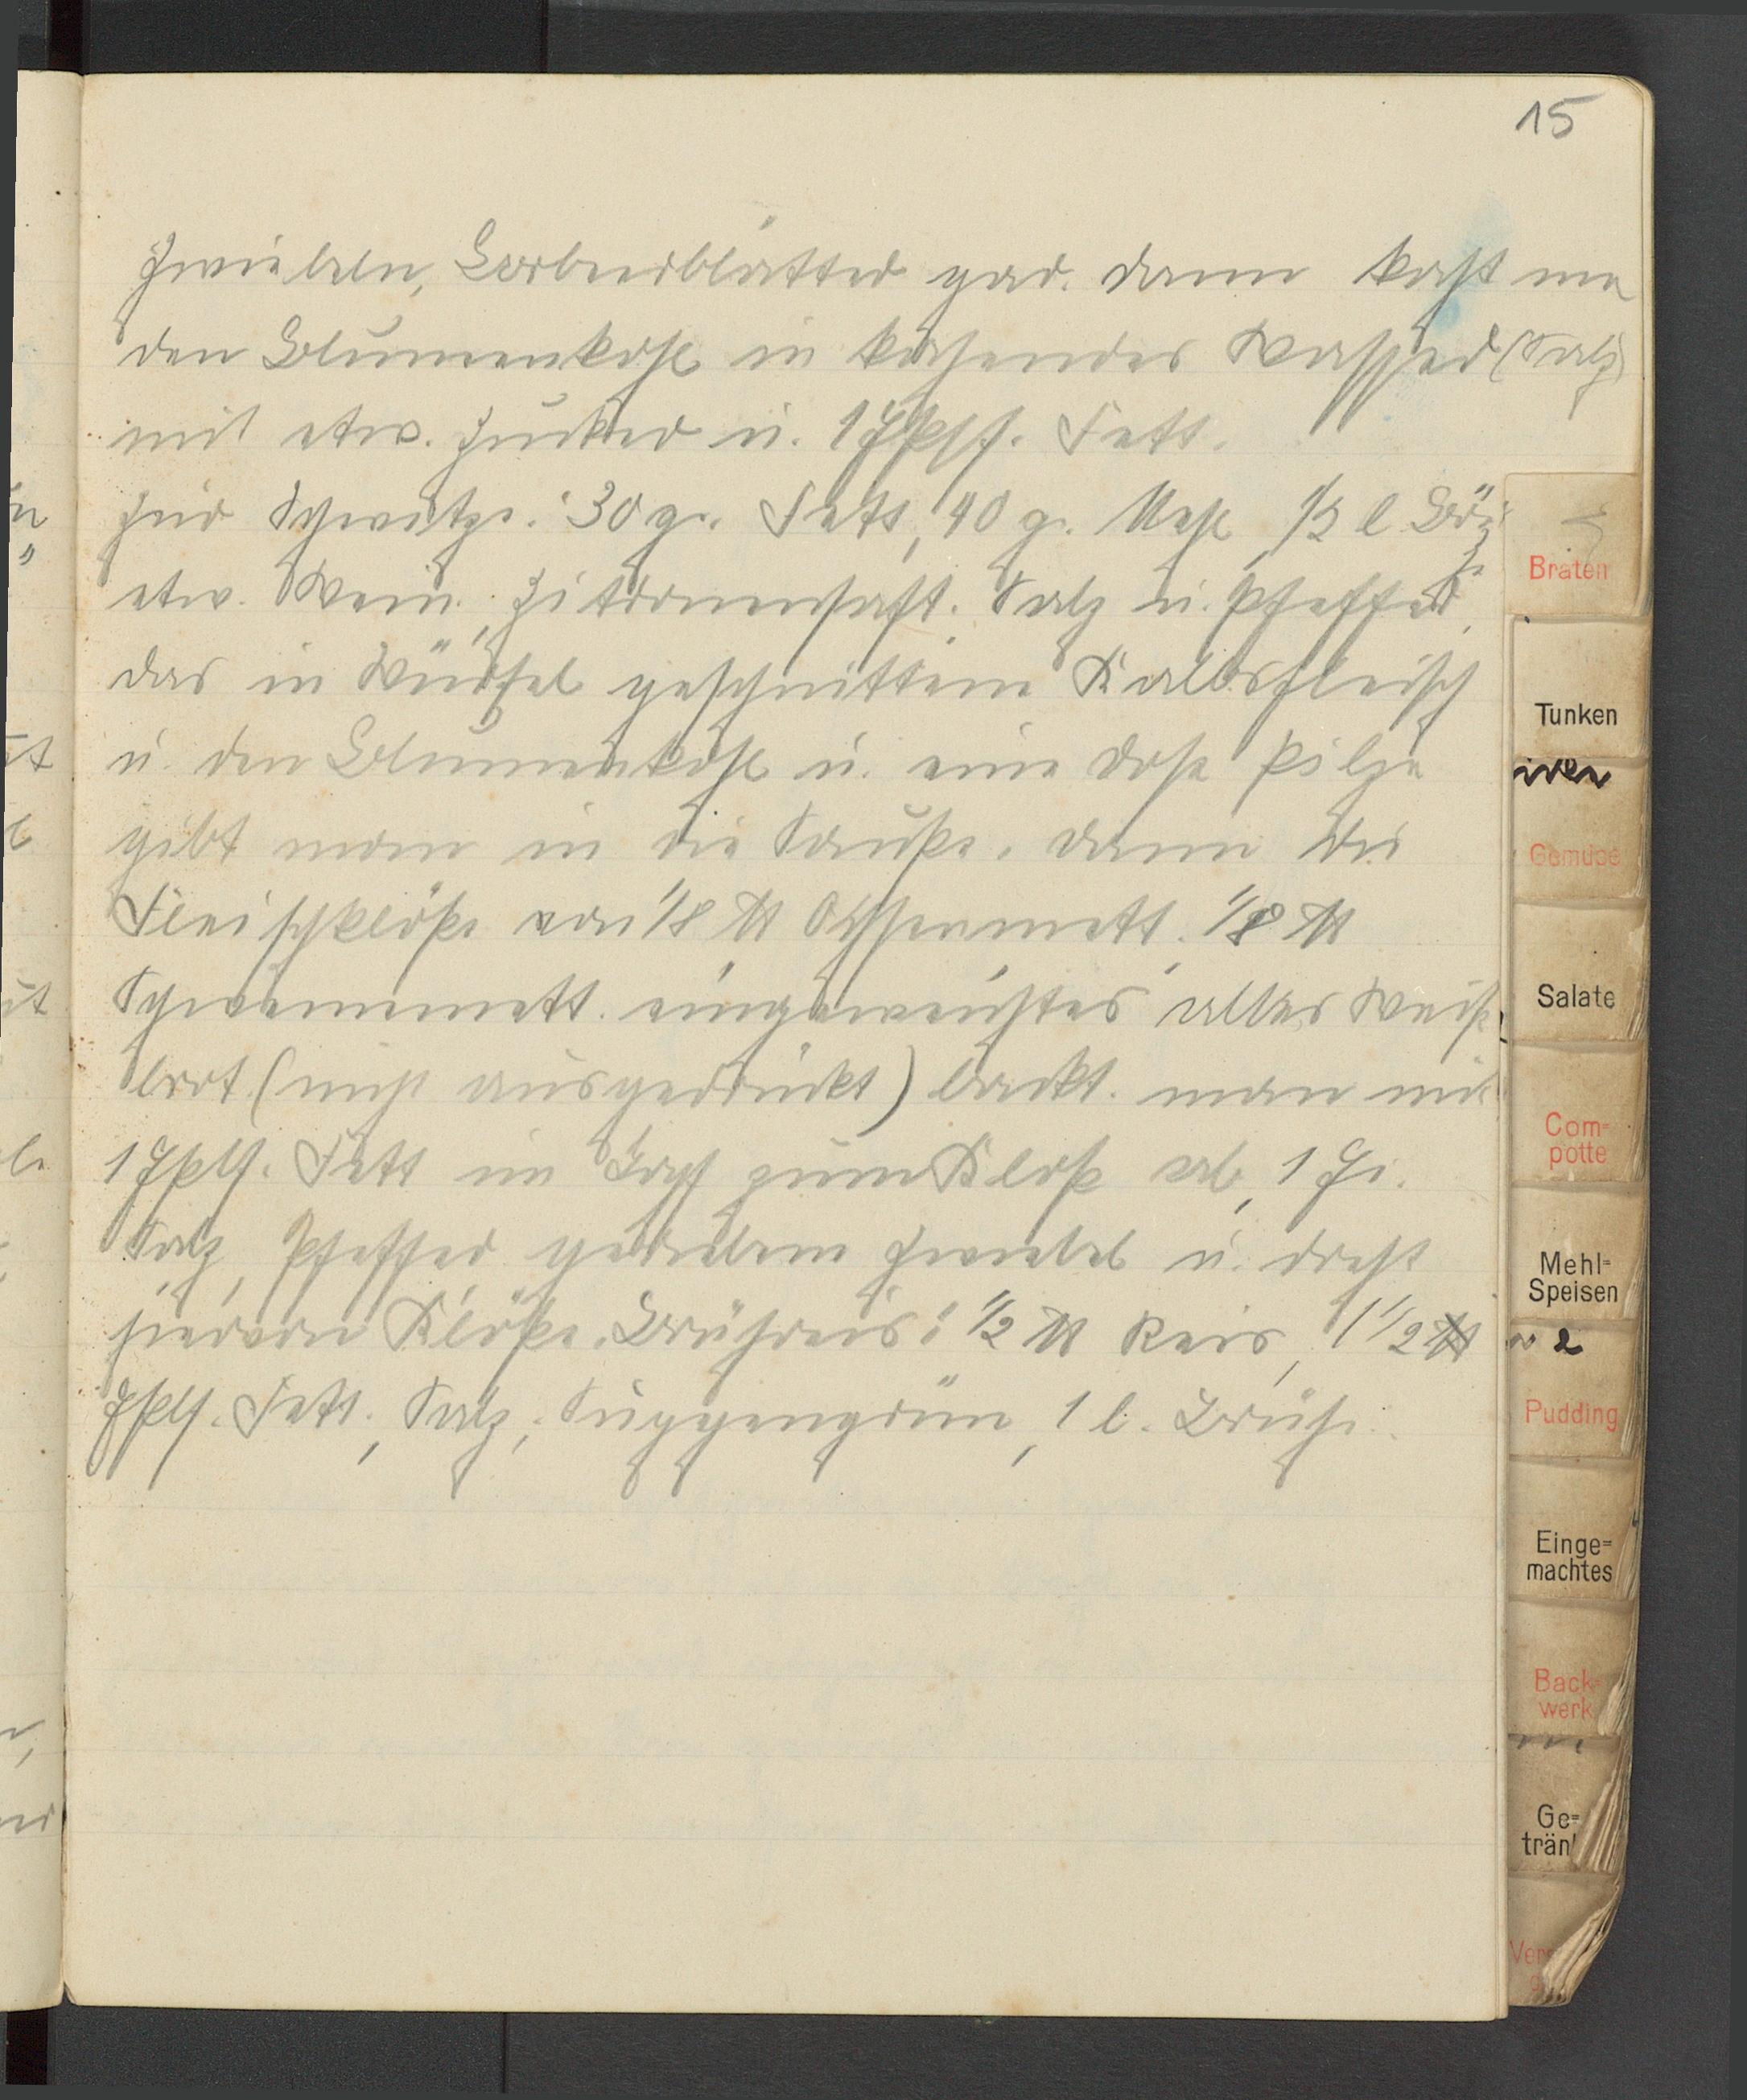 15
Zwiebeln, Lorbeerblätter gar. dann kocht ma
den Blumenkohl in kochendes Wasser (Salz)
mit etw. Zucker u. 1 Eßlf. Fett.
Zur Schwitze: 30 g. Fett, 40 g. Mehl, 1/2 l Brü
he
etw. Wein, Zitronensaft. Salz u. Pfeffer,
das in Würfel geschnittene Kalbsfleisch
u. den Blumenkohl u. eine Dose Pilze
gibt man in die Sauße. dann die
Fleischklöße von 1/8 ℔ Ochsenmett, 1/8 ℔
Schweinemett. eingeweichtes altes Weiß
brot (nicht ausgedrückt) backt man mit
1 Eßlf. Fett im Topf zum Kloß ab, 1 Ei.
Salz, Pfeffer, geriebene Zwiebel u. dreht
hiervon Klöße. Brühreis: 1/2 ℔ Reis, 1 1/2 ℔
Eßlf. Fett, Salz, Suppengrün, 1 l. Brühe.
Braten
Tunken
Gemüse
Salate
Com=
potte
Mehl=
Speisen
2
Pudding
Einge=
machtes
Back=
werk
Ge=
trän
Ver